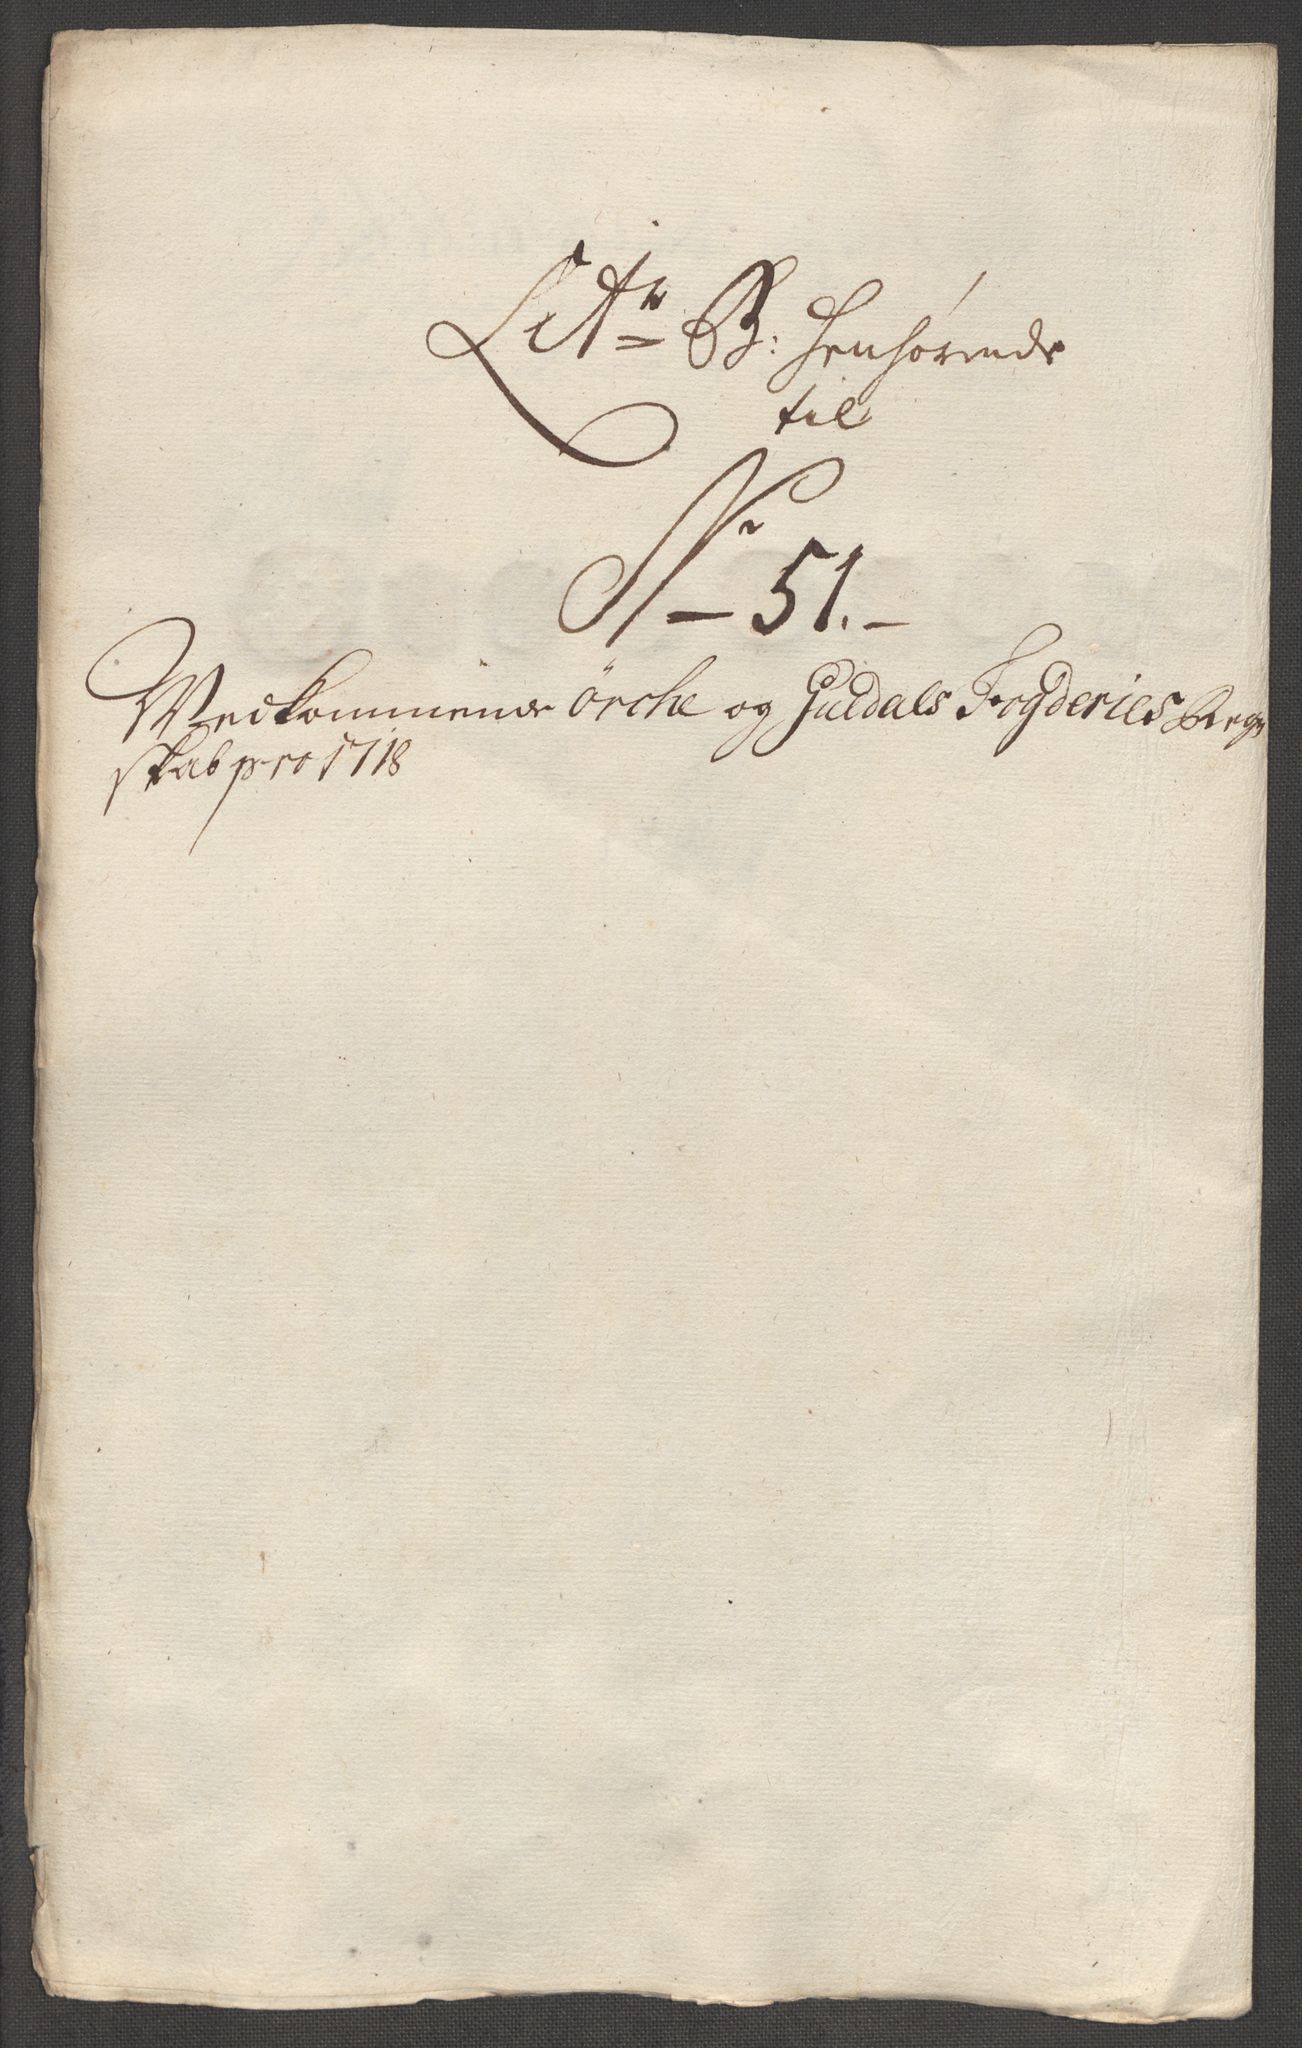 Litr B: Henhørende
til
Nr 51.
Wedkommende Örche og Guldals Fogderies Regn
skab pro 1718